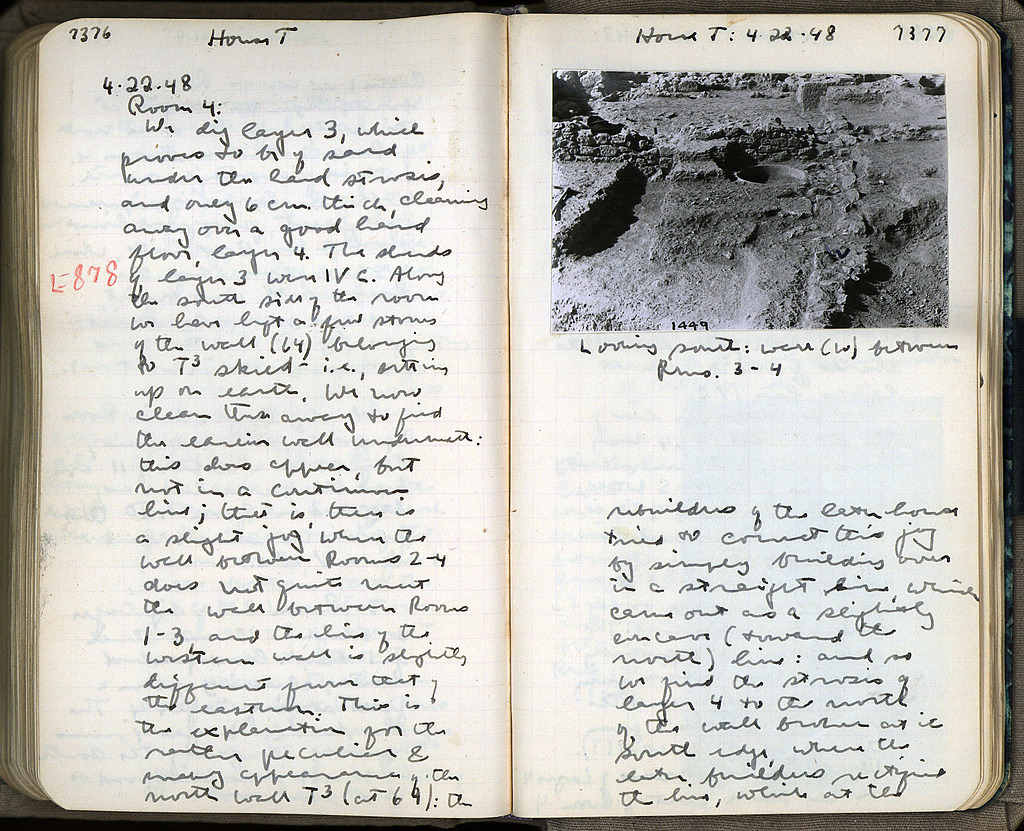 7376
House T
4.22.48
Room 4:
We dig layer 3, which
proves to be of sand
under the hard strosis,
and only 6 cm. thick, cleaning
away over a good hard
floor, layer 4. The sherds
L-878
of layer 3 were IV C. Along
the south side of the room
we have left a few stones
of the wall (64) belonging
to T³ skied - i.e., sitting
up on earth. We now
clean these away to find
the earlier wall underneath:
this does appear, but
not in a continuous
line; that is, there is
a slight jog where the
wall between Rooms 2-4
does not quite meet
the wall between Rooms
1-3, and the line of the
western wall is slightly
different from that of
the eastern. This is
the explanation for the
rather peculiar &
appearance of the
north wall T³ (at 64): the
House T: 4.22.48
7377
1449
W
Looking south: wall (W) between
Rms. 3-4
rebuilders of the later house
tried to correct this jog
by simply building over
in a straight line, which
came out as a slightly
concave (toward the
north) line: and so
we find the strosis of
layer 4 to the north
of the wall broken at its
south edge, where the
later builders rectified
the line, while at the